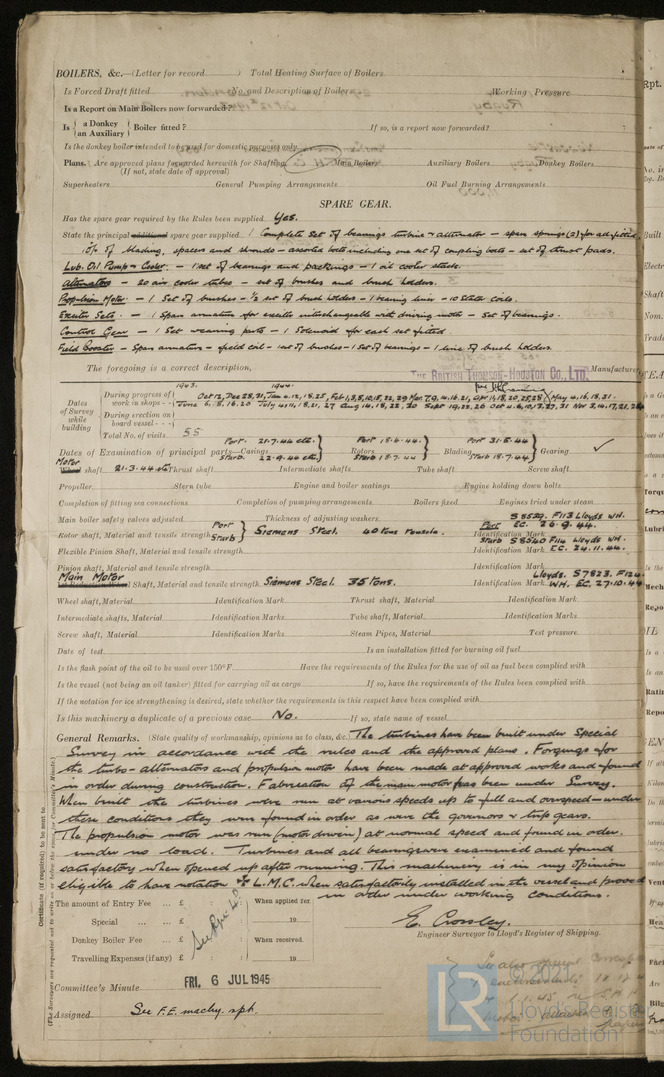 BOILERS, &c.—(Letter for record ) Total Heating Surface of Boilers
Is Forced Draft fitted No. and Description of Boilers Working Pressure
Is a Report on Main Boilers now forwarded?
Is { a Donkey / an Auxiliary } Boiler fitted? If so, is a report now forwarded?
Is the donkey boiler intended to be used for domestic purposes only
Plans. Are approved plans forwarded herewith for Shafting Main Boilers Auxiliary Boilers Donkey Boilers
(If not, state date of approval)
Superheaters General Pumping Arrangements Oil Fuel Burning Arrangements
SPARE GEAR.
Has the spare gear required by the Rules been supplied Yes.
State the principal additional spare gear supplied 1 Complete Set of bearings turbine & alternator — spare springs (2) for all fitted,
10% of blading, spacers and shrouds — assorted bolts including one set of coupling bolts — set of thrust pads.
Lub. Oil Pump & Cooler. — 1 set of bearings and packings — 1 oil cooler stack.
Alternators — 20 air cooler tubes — set of brushes and brush holders.
Propulsion Motor. — 1 Set of bushes — ½ set of brush holders — 1 bearing liner — 10 Stator coils.
Exciter Sets. — 1 Spare armature for exciter interchangeable with driving motor — Set of bearings.
Control Gear — 1 Set wearing parts — 1 Solenoid for each set fitted.
Field Booster — Spare armature — field coil — set of brushes — 1 Set of bearings — 1 line of brush holders.
The foregoing is a correct description, THE BRITISH THOMSON-HOUSTON CO., LTD. Manufacturer
Dates of Survey while building
1943. 1944.
During progress of work in shops - - Oct 12, Dec 28, 31, Jan 6, 12, 18, 25, Feb 1, 3, 8, 10, 18, 22, 29 Mar 7, 9, 14, 16, 21, Apr 14, 18, 20, 25, 28 May 4, 16, 18, 31.
During erection on board vessel - - - June 6. 8. 16. 20 July 4, 11, 18, 21, 27 Aug 14. 18, 22, 30 Sept 19, 22, 26 Oct 4, 6, 10, 13, 27, 31 Nov 3, 14, 17, 21, 24
Total No. of visits 55
Port. 21.7.44 etc. Port. 18.6.44. Port 31.8.44
Dates of Examination of principal parts—Casings Rotors Blading Gearing ✓
Starb. 22.9.44 etc. Starb 18.7.44 Starb 18.7.44
Motor shaft 21.3.44 etc Thrust shaft Intermediate shafts Tube shaft Screw shaft
Propeller Stern tube Engine and boiler seatings Engine holding down bolts
Completion of fitting sea connections Completion of pumping arrangements Boilers fixed Engines tried under steam
Main boiler safety valves adjusted Thickness of adjusting washers S 8539. F113 Lloyds WH.
Port EC. 26.9.44.
Rotor shaft, Material and tensile strength Port Starb } Siemens Steel. 40 tons tensile. Identification Mark
Starb S 8540 F114 Lloyds WH.
Flexible Pinion Shaft, Material and tensile strength Identification Mark EC. 24.11.44.
Pinion shaft, Material and tensile strength Identification Mark
Main Motor Lloyds. S 7823. F124
Shaft, Material and tensile strength Siemens Steel. 35 tons. Identification Mark WH. EC. 27.10.44
Wheel shaft, Material Identification Mark Thrust shaft, Material Identification Mark
Intermediate shafts, Material Identification Marks Tube shaft, Material Identification Marks
Screw shaft, Material Identification Marks Steam Pipes, Material Test pressure
Date of test Is an installation fitted for burning oil fuel
Is the flash point of the oil to be used over 150°F Have the requirements of the Rules for the use of oil as fuel been complied with
Is the vessel (not being an oil tanker) fitted for carrying oil as cargo If so, have the requirements of the Rules been complied with
If the notation for ice strengthening is desired, state whether the requirements in this respect have been complied with
Is this machinery a duplicate of a previous case No. If so, state name of vessel
General Remarks. (State quality of workmanship, opinions as to class, &c.) The turbines have been built under Special
Survey in accordance with the rules and the approved plans. Forgings for
the turbo-alternators and propulsion motor have been made at approved works and found
in order during construction. Fabrication of the main motor has been under Survey.
When built the turbines were run at various speeds up to full and overspeed — under
these conditions they were found in order as were the governors & trip gears.
The propulsion motor was run (motor driven) at normal speed and found in order.
under no load. Turbines and all bearings were examined and found
satisfactory when opened up after running. This machinery is in my opinion
eligible to have notation L.M.C. when satisfactorily installed in the vessel and proved
in order under working conditions.
The amount of Entry Fee ... £ : : When applied for,
Special ... ... £ : : 19
Donkey Boiler Fee ... £ : : When received,
Travelling Expenses (if any) £ : : 19
E. Crossley.
Engineer Surveyor to Lloyd's Register of Shipping.
Committee's Minute FRI. 6 JUL 1945
Assigned See F.E. machy. rpt.
Certificate (if required) to be sent to
(The Surveyors are requested not to write on or below the space for Committee's Minute.)
© 2021
Lloyd's Register
Foundation